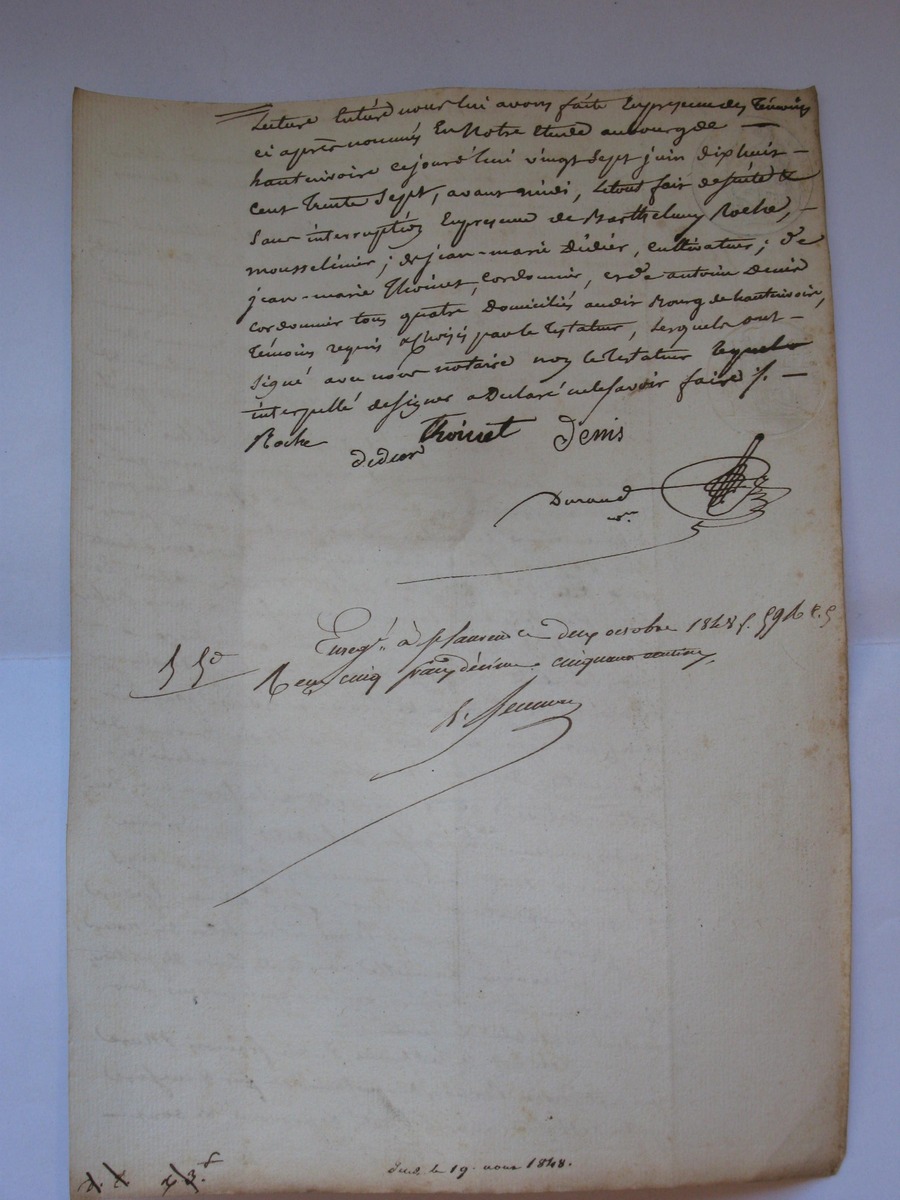 Lecture Entière nous lui avons faite En presence des Témoins
ci après nommés En Notre Etude au bourg de —
hauterivoire ce jourd'hui vingt Sept juin dix huit –
cent Trente Sept, avant midi, Le tout fait de suite &
Sans interruption En presence de Barthelemy Roche, –
mousselinier; de jean-marie Didier, cultivateur; de
jean-marie Thoinet, cordonnier, et de antoine Denis
cordonnier tous quatre Domiciliés audit Bourg de hauterivoire,
Témoins requis & choisis par le Testateur, Lesquels ont –
Signé avec nous notaire non le Testateur lequel
interpellé de signer a Declaré ne le savoir faire ./. —
Roche Thoinet Denis
didier
Durand
nre
Enregé à St Laurent le deux octobre 1848 f. 59 R c. 5
5 50 Reçu cinq francs décime cinquante centimes
Déd. le 19 aout 1848.